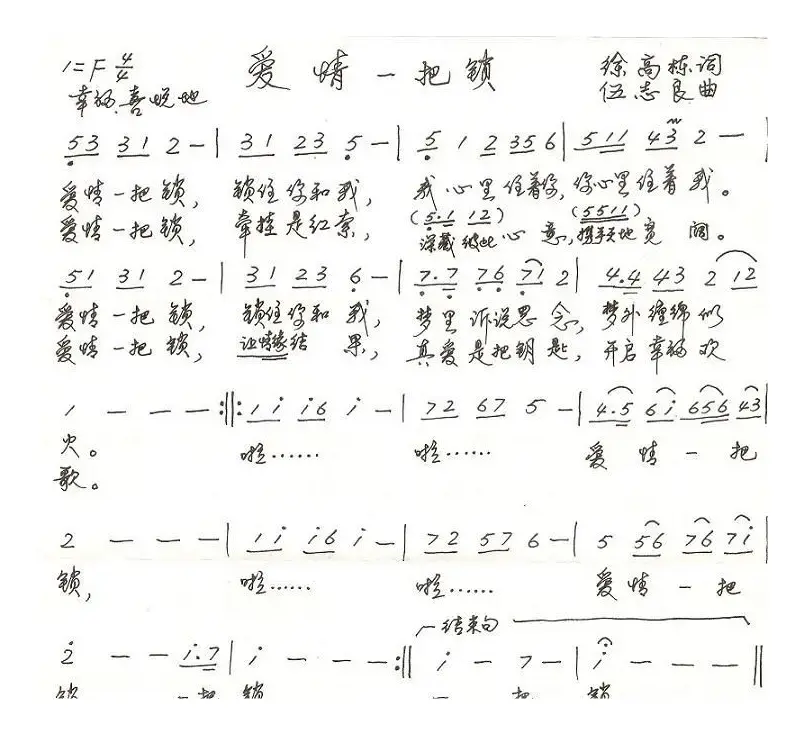 1=F 4/4
爱情一把锁
徐高栋词
幸福、喜悦地
伍志良曲
53 31 2 - | 31 23 5 - | 5 1 2 356 | 511 43 2 - |
爱情一把锁, 锁住你和我, 我心里住着你, 你心里住着我。
(5·1 12) (5511)
爱情一把锁, 牵挂是红索, 深藏彼此心意, 携手天地宽阔。
51 31 2 - | 31 23 6 - | 7·7 76 71 2 | 4·4 43 2 12
爱情一把锁, 锁住你和我, 梦里诉说思念, 梦外缠绵似
爱情一把锁, 让情缘结果, 真爱是把钥匙, 开启幸福欢
1 - - - :||: 1i i6 i - | 72 67 5 - | 4·5 6i 656 43 |
火。 啦…… 啦…… 爱情一把
歌。
2 - - - | 1i i6 i - | 72 57 6 - | 5 56 76 7i |
锁, 啦…… 啦…… 爱情一把
结束句
2 - - i·7 | i - - - :|| i - 7 - | i - - - ||
锁 一把锁 一把锁